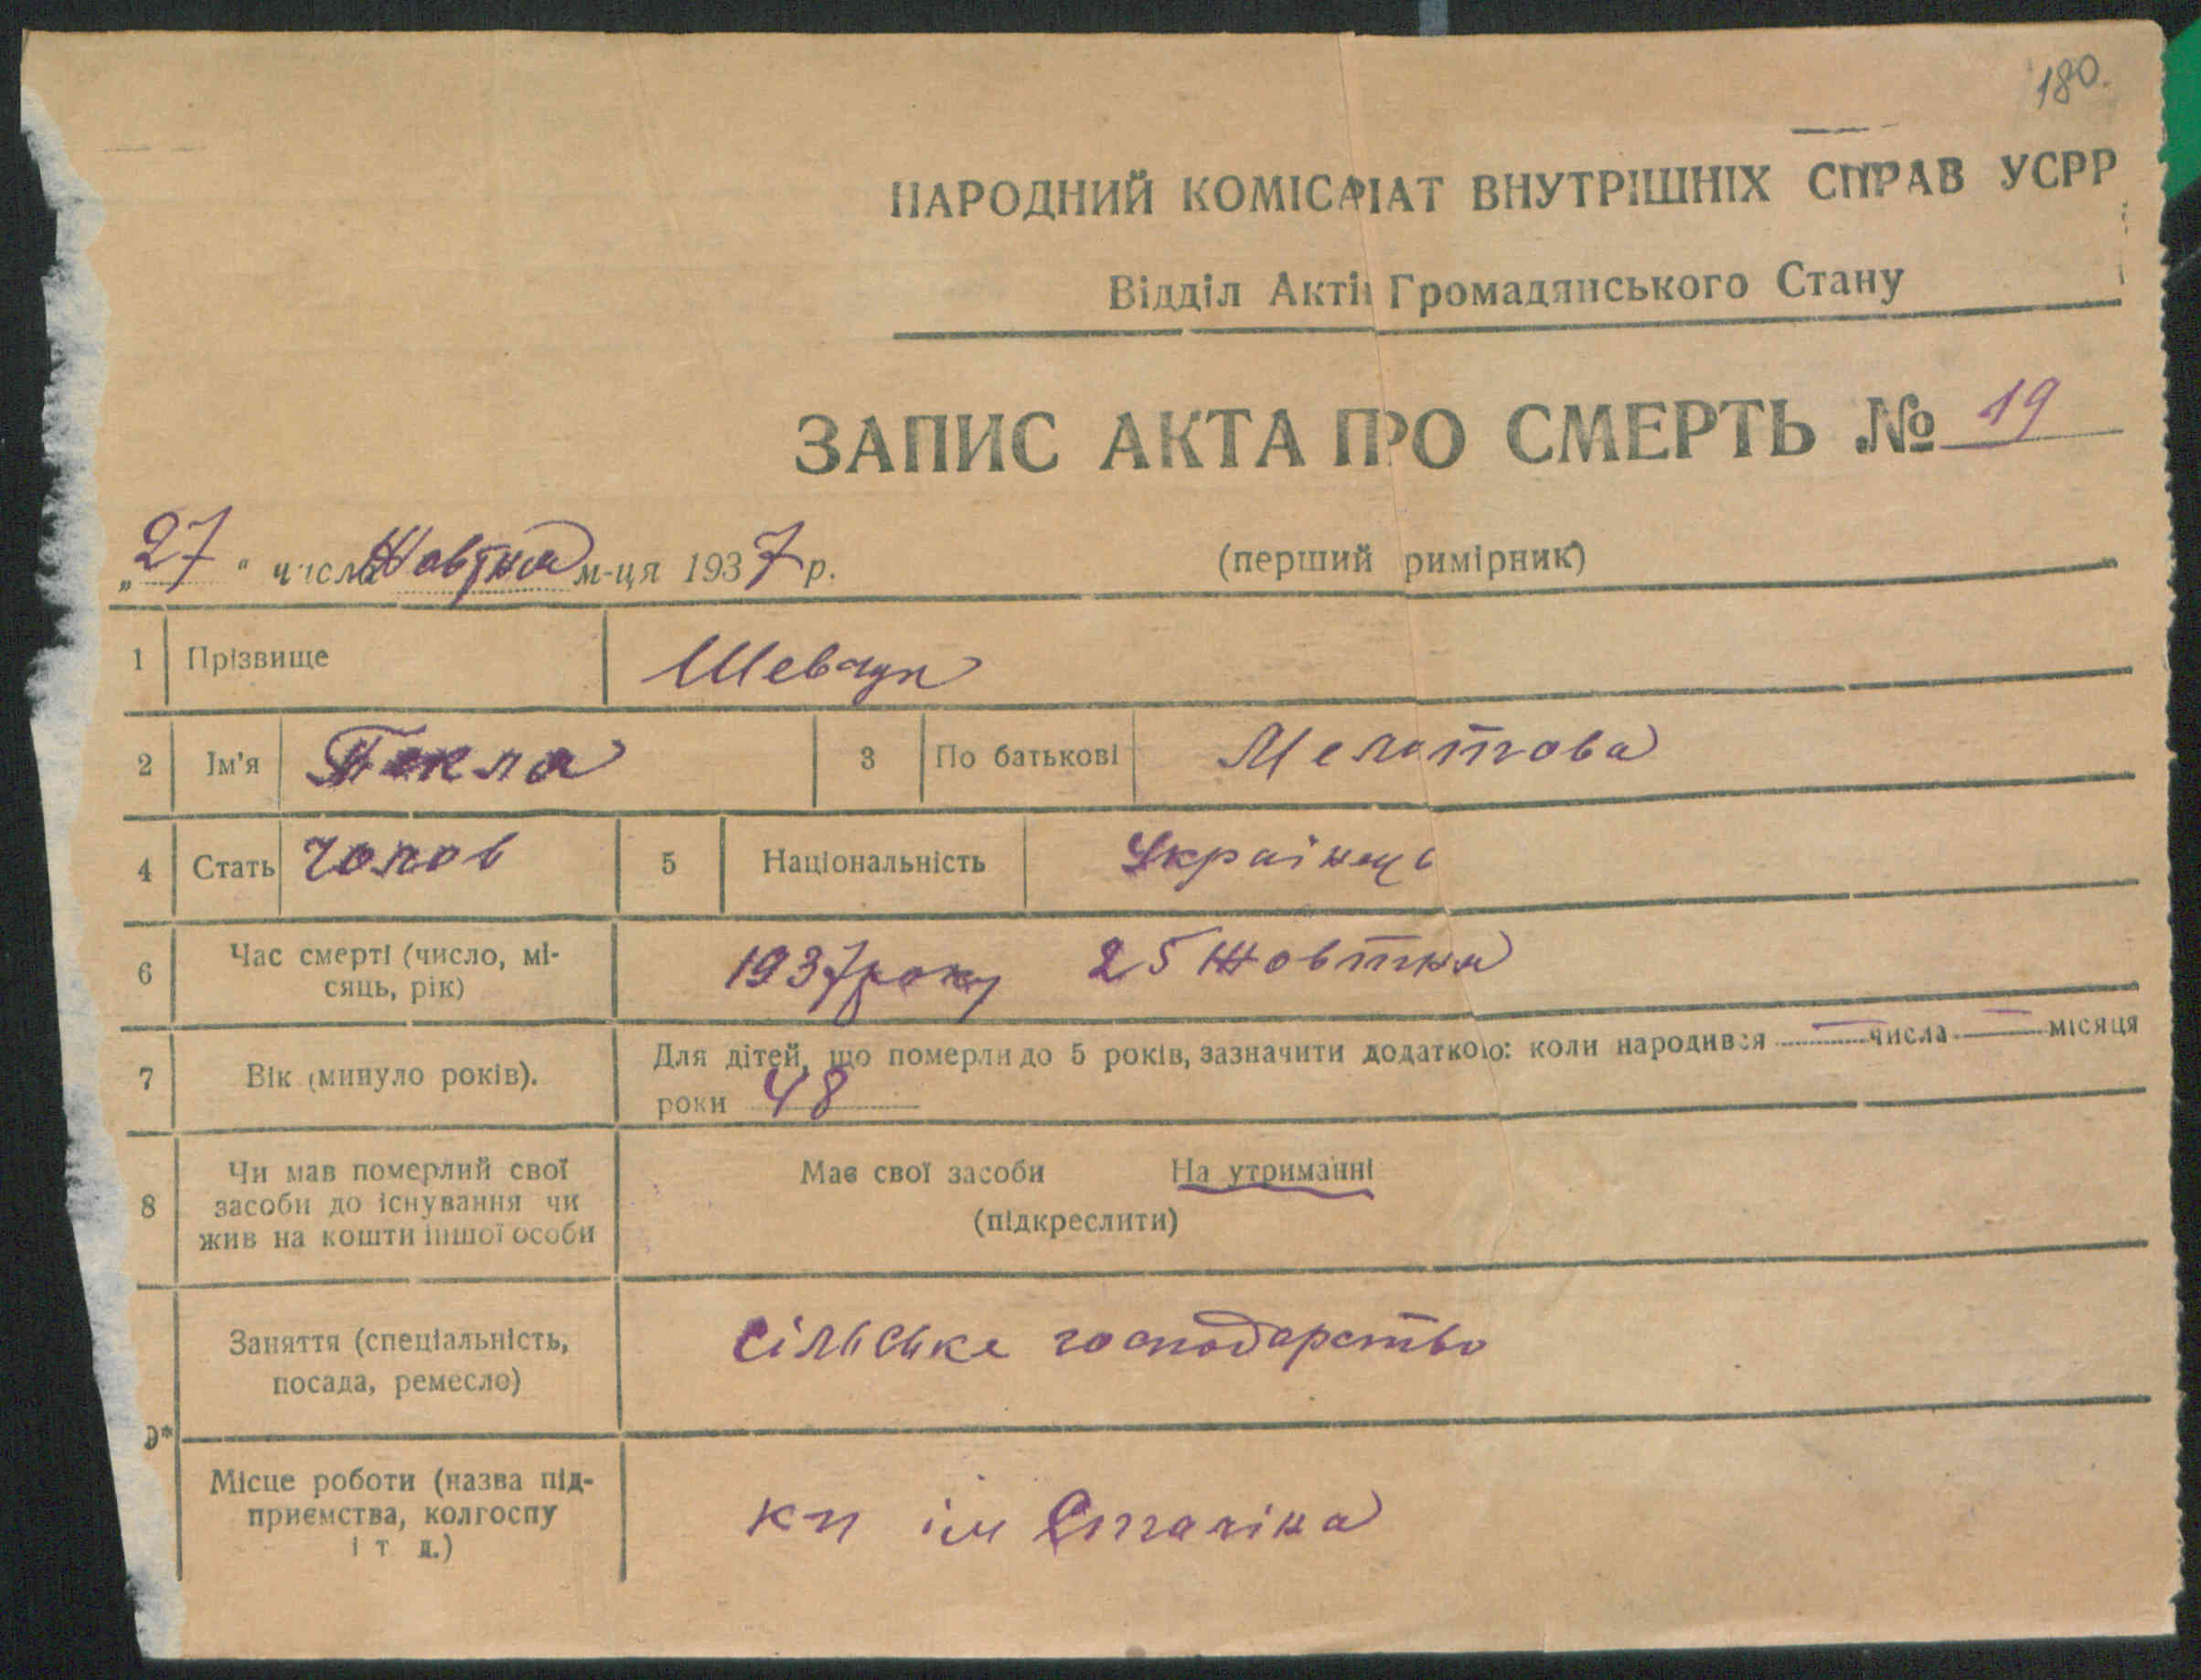 180.
НАРОДНИЙ КОМІСАРІАТ ВНУТРІШНІХ СПРАВ УСРР
Відділ Актів Громадянського Стану
ЗАПИС АКТА ПРО СМЕРТЬ № 19
„27" числа Жовтня м-ця 1937 р. (перший римірник)
1 Прізвище Шевчук
2 Ім'я Текла 3 По батькові
4 Стать чолов 5 Національність Українець
6 Час смерті (число, мі-
сяць, рік) 1937 року 25 Жовтня
7 Вік (минуло років). Для дітей, що померли до 5 років, зазначити додатково: коли народився — числа — місяця
роки 48
8 Чи мав померлий свої
засоби до існування чи
жив на кошти іншої особи
Має свої засоби На утриманні
(підкреслити)
Заняття (спеціальність,
посада, ремесло) сільське господарство
9*
Місце роботи (назва під-
приємства, колгоспу
і т д.) кп ім Сталіна